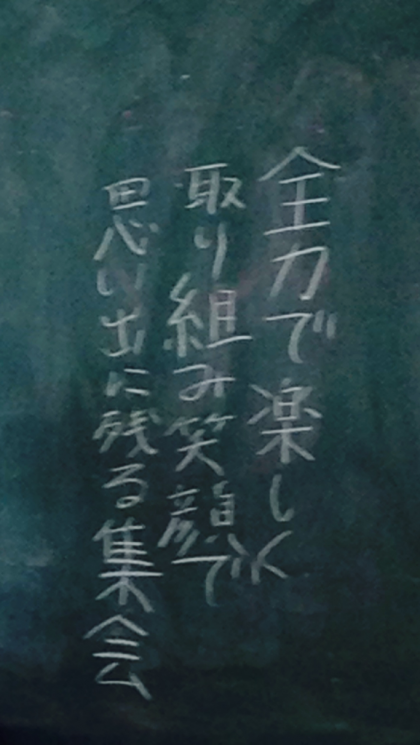 全力で楽しく
取り組み笑顔で
思い出に残る集会